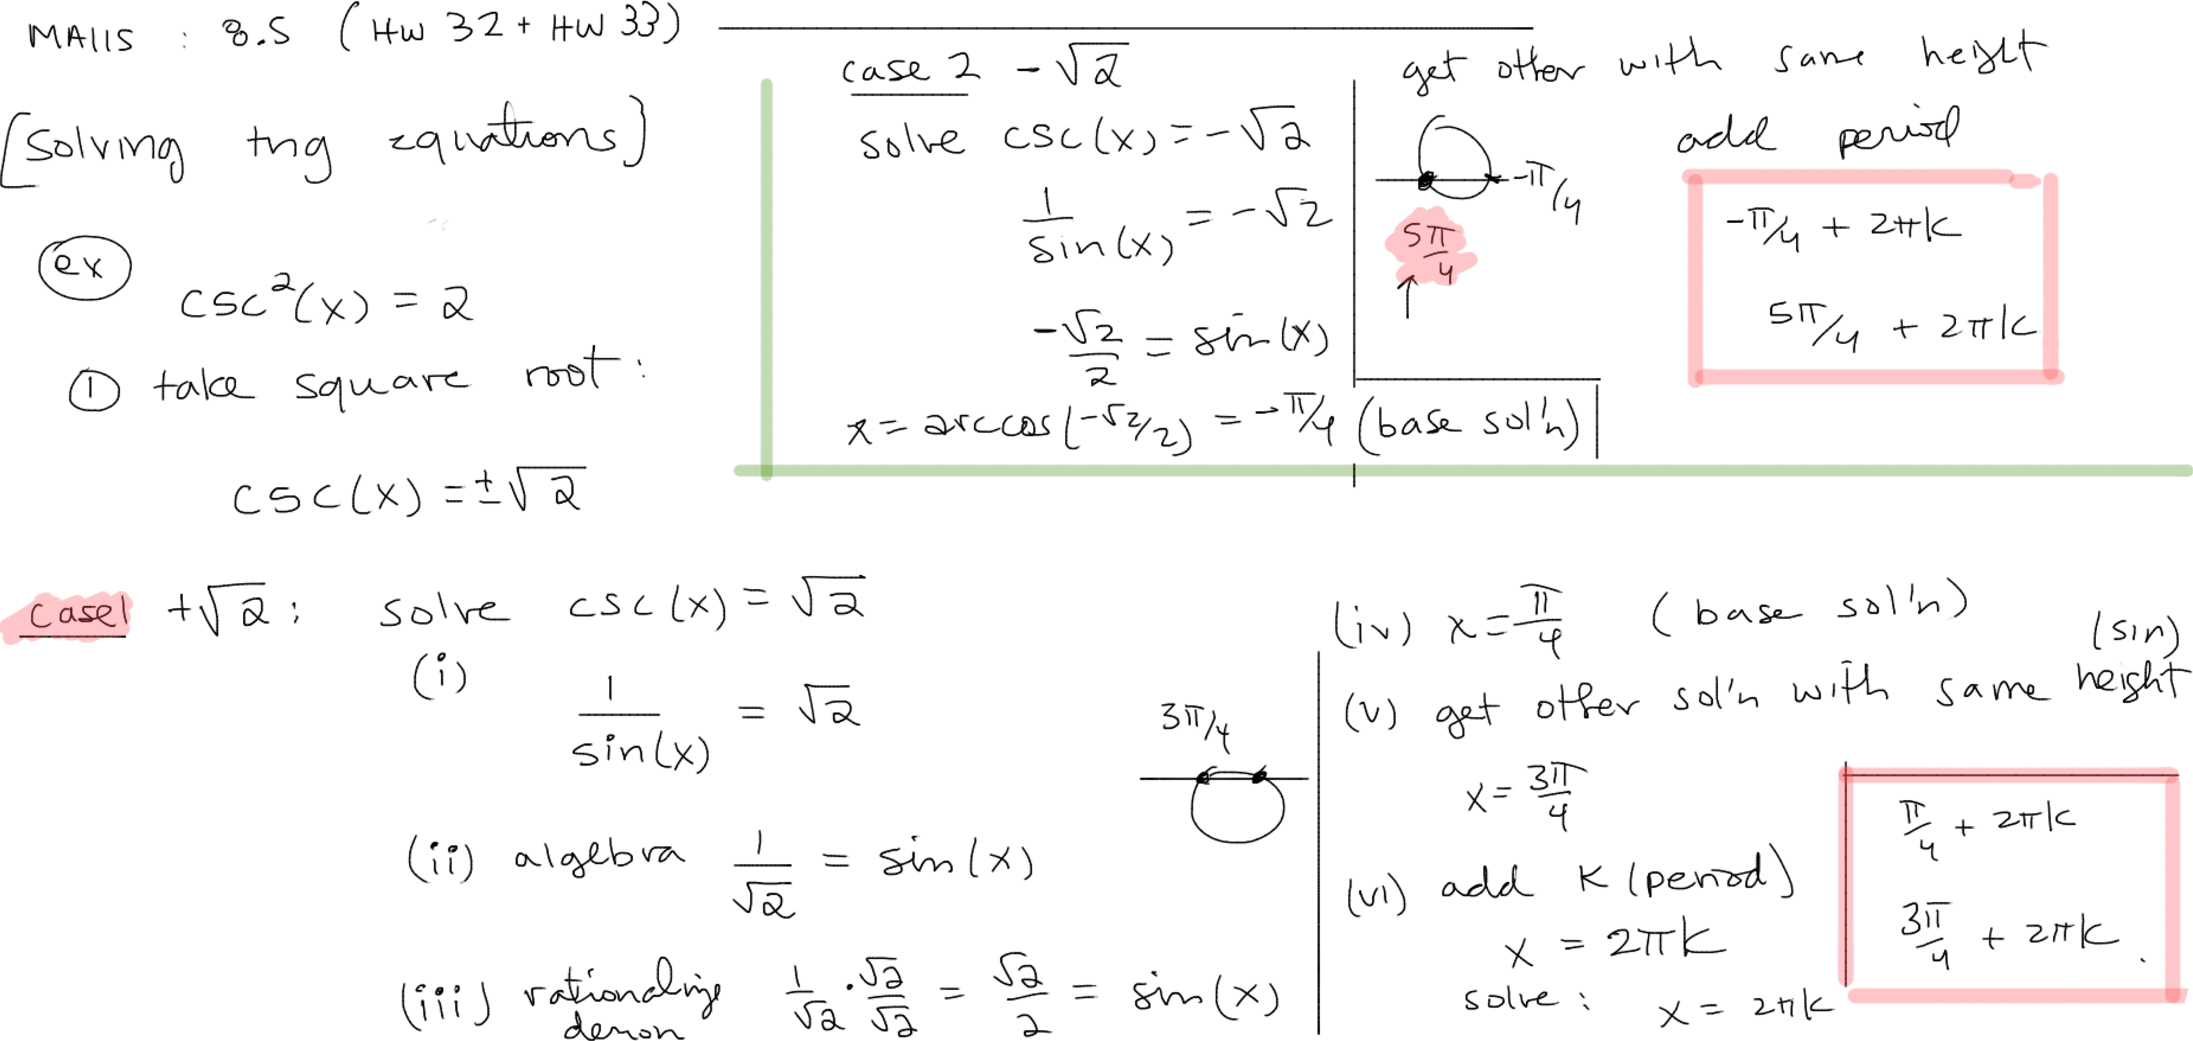 MA115 : 8.5 (HW 32 + HW 33)
[Solving trig equations]
ex
csc²(x) = 2
① take square root:
csc(x) = ±√2
case 2 -√2
solve csc(x) = -√2
1/sin(x) = -√2
-√2/2 = sin(x)
x = arccos(-√2/2) = -π/4 (base sol'n)
get other with same height
-π/4
5π/4
↑
add period
-π/4 + 2πk
5π/4 + 2πk
case1 +√2: solve csc(x) = √2
(i) 1/sin(x) = √2
(ii) algebra 1/√2 = sin(x)
(iii) rationalize denom 1/√2 · √2/√2 = √2/2 = sin(x)
3π/4
(iv) x = π/4 (base sol'n)
(v) get other sol'n with same (sin) height
x = 3π/4
(vi) add K (period)
x = 2πk
solve: x = 2πk
π/4 + 2πk
3π/4 + 2πk.